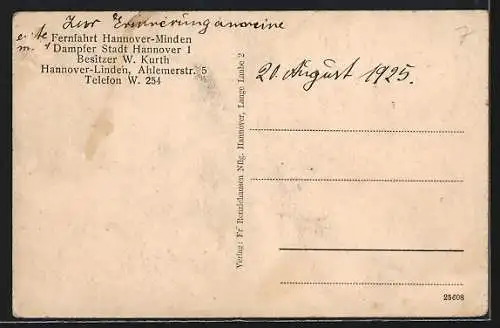 Zur Erinnerung an meine
erste
Fernfahrt Hannover-Minden
m. d.
Dampfer Stadt Hannover I
Besitzer W. Kurth
Hannover-Linden, Ahlemerstr. 5
Telefon W. 254
20. August 1925.
7
Hannover, Lange Laube 2
25608